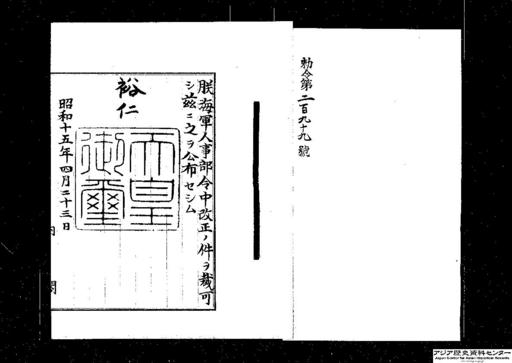 勅令第二百九十九號
朕海軍人事部令中改正ノ件ヲ裁可
シ茲ニ之ヲ公布セシム
裕仁
天皇御璽
昭和十五年四月二十三日
内閣
アジア歴史資料センター
Japan Center for Asian Historical Records